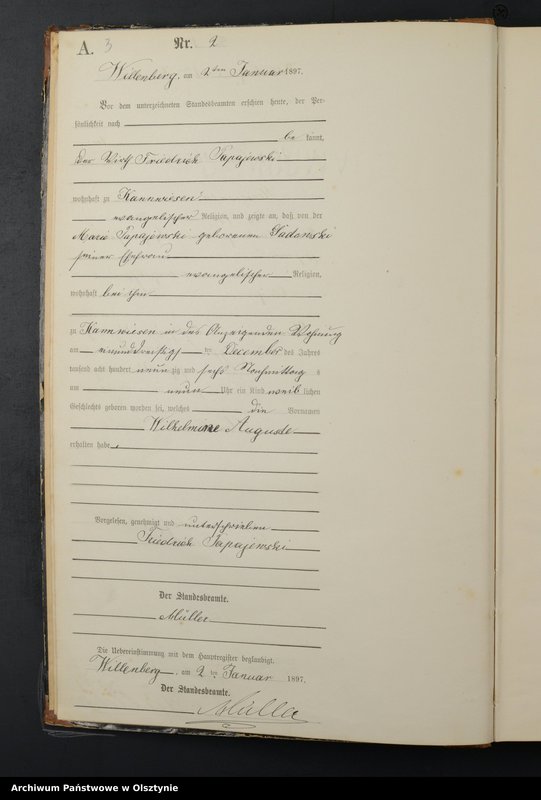 A. 3 Nr. 2
Willenberg, am 2ten Januar 1897.
Vor dem unterzeichneten Standesbeamten erschien heute, der Per-
sönlichkeit nach
be kannt,
der Wirth Friedrich Papajewski
wohnhaft zu Kannwiesen
evangelischer Religion, und zeigte an, daß von der
Marie Papajewski geborenen Sadowski
seiner Ehefrau
evangelischer Religion,
wohnhaft bei ihm
zu Kannwiesen in des Anzeigenden Wohnung
am einunddreißigsten December des Jahres
tausend acht hundert neun zig und sechs Nachmittags
um neun Uhr ein Kind weib lichen
Geschlechts geboren worden sei, welches die Vornamen
Wilhelmine Auguste
erhalten habe.
Vorgelesen, genehmigt und unterschrieben
Friedrich Papajewski
Der Standesbeamte.
Müller
Die Uebereinstimmung mit dem Hauptregister beglaubigt.
Willenberg, am 2ten Januar 1897.
Der Standesbeamte.
Müller
Archiwum Państwowe w Olsztynie